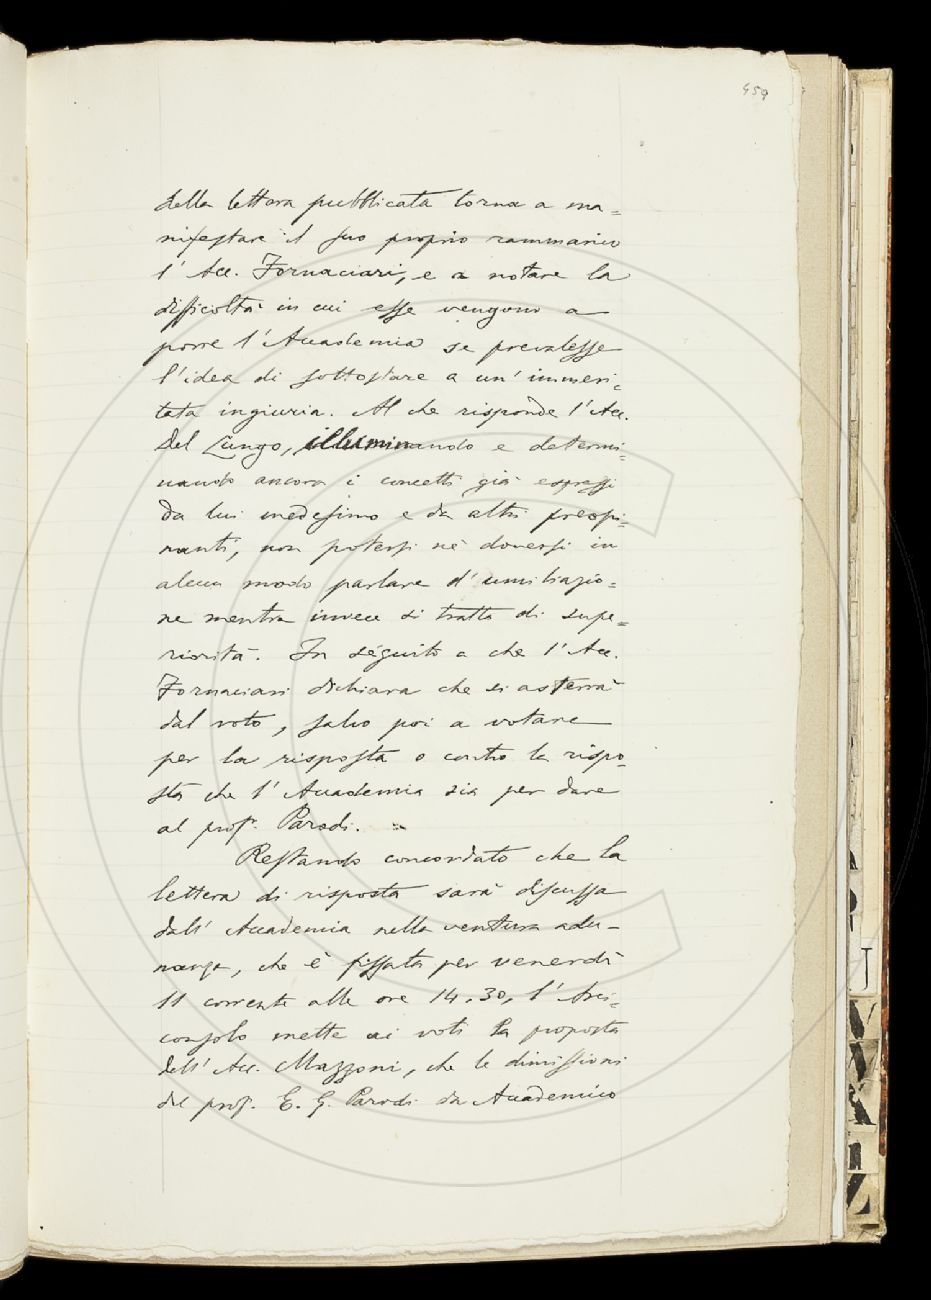 459
della lettera pubblicata torna a ma=
nifestare il suo proprio rammarico
l'Acc. Fornaciari, e a notare la
difficoltà in cui esse vengono a
porre l'Accademia se prevalesse
l'idea di sottostare a un'immeri=
tata ingiuria. Al che risponde l'Acc.
Del Lungo, illuminando e determi=
nando ancora i concetti già espressi
da lui medesimo e da altri preopi=
nanti, non potersi nè doversi in
alcun modo parlare d'umiliazio=
ne mentre invece si tratta di supe=
riorità. In séguito a che l'Acc.
Fornaciari dichiara che si asterrà
dal voto, salvo poi a votare
per la risposta o contro la rispo=
sta che l'Accademia sia per dare
al prof. Parodi. =
Restando concordato che la
lettera di risposta sarà discussa
dall'Accademia nella ventura adu-
nanza, che è fissata per venerdì
11 corrente alle ore 14.30, l'Arci=
consolo mette ai voti la proposta
dell'Acc. Mazzoni, che le dimissioni
del prof. E. G. Parodi da Accademico